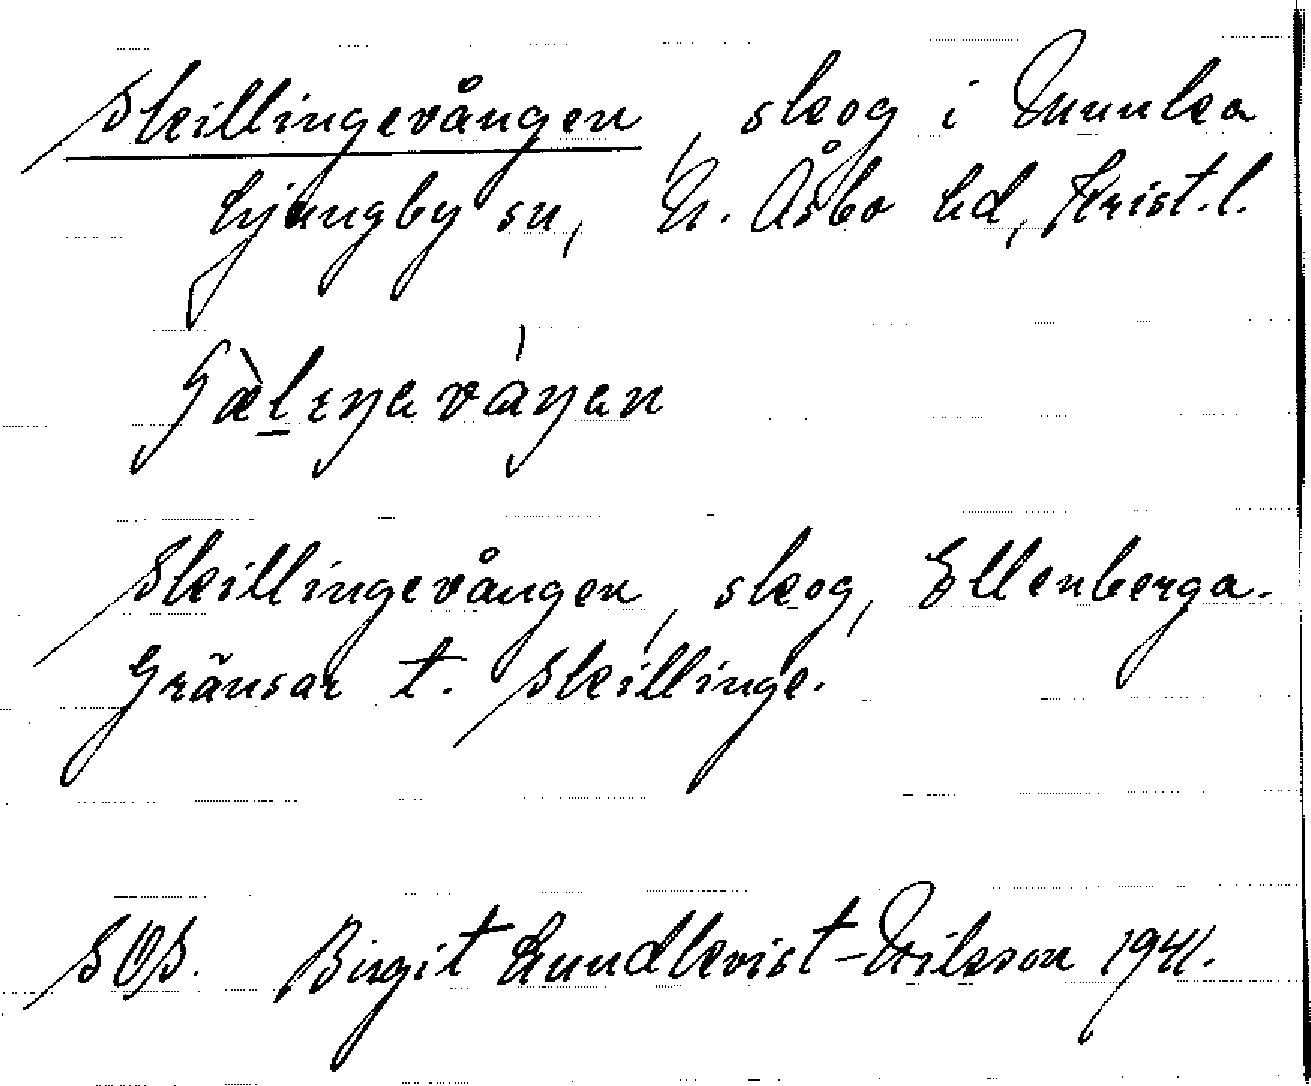 Skillingevången, skog i Munka
Ljungby sn, N. Åsbo hd, Krist.l.
Skillingevången, skog, Ellenberga.
Gränsar t. Skillinge.
SOS. Birgit Lundkvist-Nilsson 1941.